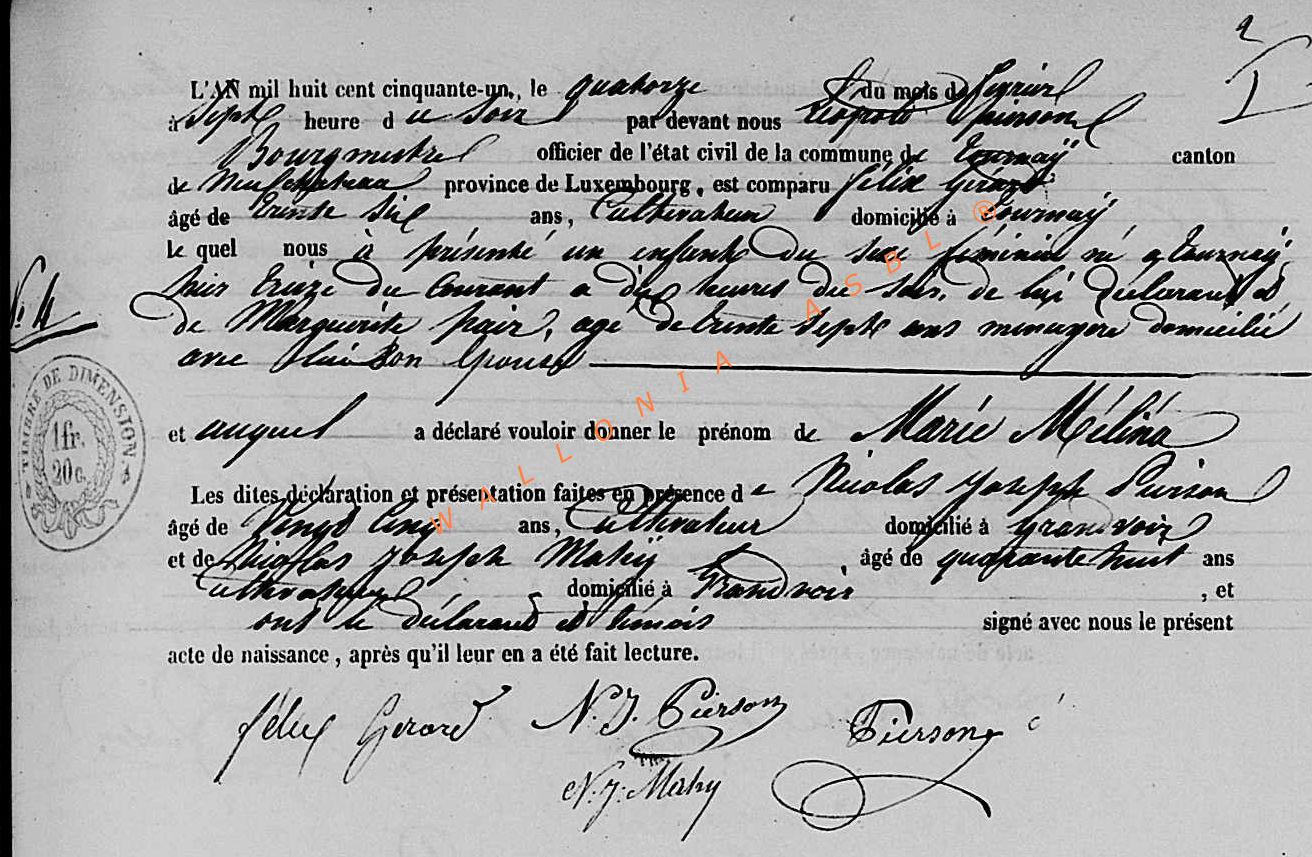 2
I
L'AN mil huit cent cinquante-un, le quatorze du mois de fevrier
à sept heure d u soir par devant nous Léopold Pierson
Bourgmestre officier de l'état civil de la commune de Tournaÿ canton
de Neufchateau province de Luxembourg, est comparu félix Gérard
âgé de trente six ans, Cultivateur domicilié à Tournaÿ
le quel nous à présenté un enfant du sexe féminin né a tournaÿ
treize du Courant a dix heures du soir, de lui déclarant et
de Marguerite, agé de trente sept ans ménagère domicilié
avec son Epoux
et auquel a déclaré vouloir donner le prénom de Marie Mélina
Les dites déclaration et présentation faites en présence d e Nicolas Joseph Pierson
âgé de Vingt Cinq ans, Cultivateur domicilié à Grandvoir
et de Nicolas Joseph Mahÿ, âgé de quarante huit ans
Cultivateur domicilié à Grandvoir, et
ont le déclarant et témois signé avec nous le présent
acte de naissance, après qu'il leur en a été fait lecture.
N. 4
TIMBRE DE DIMENSION
1 fr.
20 c.
félix Gerard N. J. Pierson Pierson
N. J. Mahy
WALLONIA ASBL ®